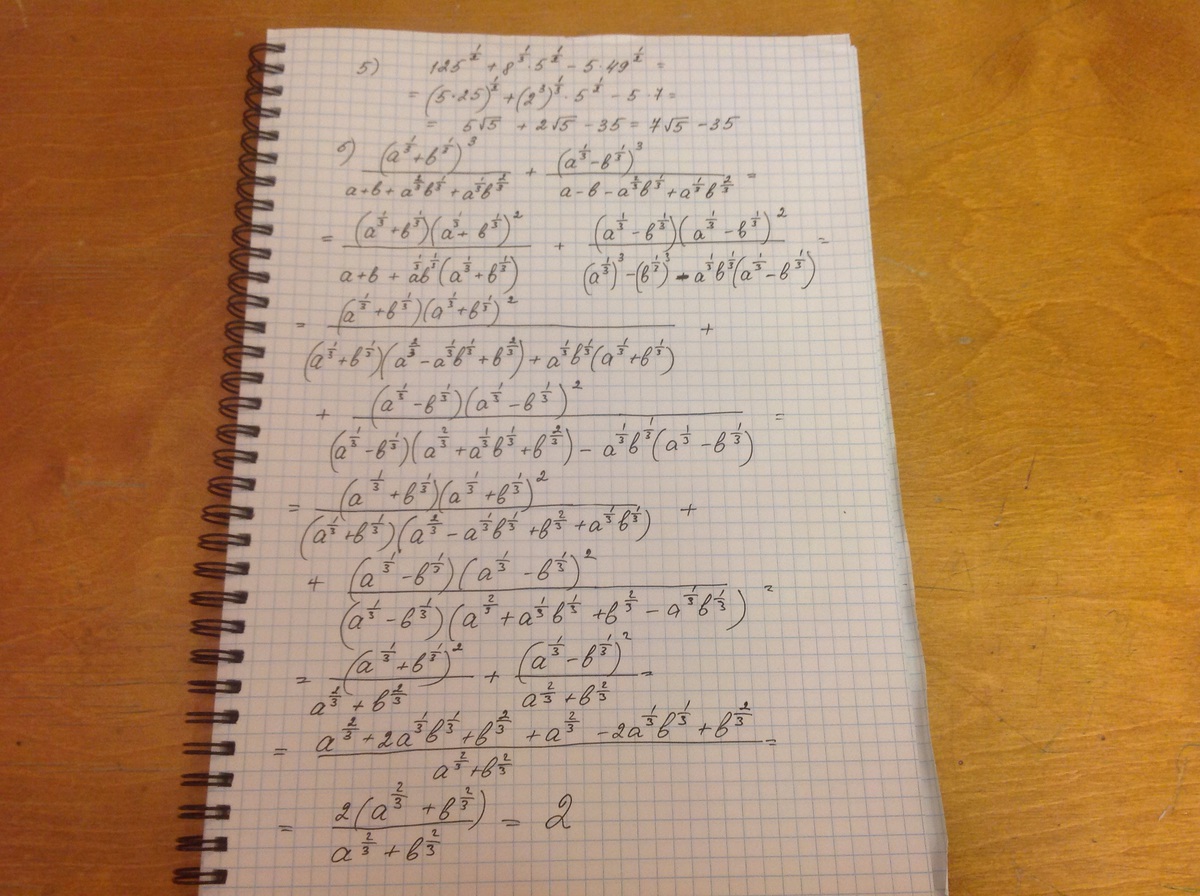 5) 125^{1/2} + 8^{1/3} · 5^{1/2} − 5 · 49^{1/2} =
= (5·25)^{1/2} + (2^3)^{1/3} · 5^{1/2} − 5 · 7 =
= 5√5 + 2√5 − 35 = 7√5 − 35
6) (a^{1/3}+в^{1/3})^3 / (a+в+a^{2/3}в^{1/3}+a^{1/3}в^{2/3}) + (a^{1/3}−в^{1/3})^3 / (a−в−a^{2/3}в^{1/3}+a^{1/3}в^{2/3}) =
= (a^{1/3}+в^{1/3})(a^{1/3}+в^{1/3})^2 / (a+в+a^{1/3}в^{1/3}(a^{1/3}+в^{1/3})) + (a^{1/3}−в^{1/3})(a^{1/3}−в^{1/3})^2 / ((a^{1/3})^3−(в^{1/3})^3−a^{1/3}в^{1/3}(a^{1/3}−в^{1/3})) =
= (a^{1/3}+в^{1/3})(a^{1/3}+в^{1/3})^2 / ((a^{1/3}+в^{1/3})(a^{2/3}−a^{1/3}в^{1/3}+в^{2/3})+a^{1/3}в^{1/3}(a^{1/3}+в^{1/3})) +
+ (a^{1/3}−в^{1/3})(a^{1/3}−в^{1/3})^2 / ((a^{1/3}−в^{1/3})(a^{2/3}+a^{1/3}в^{1/3}+в^{2/3})−a^{1/3}в^{1/3}(a^{1/3}−в^{1/3})) =
= (a^{1/3}+в^{1/3})(a^{1/3}+в^{1/3})^2 / ((a^{1/3}+в^{1/3})(a^{2/3}−a^{1/3}в^{1/3}+в^{2/3}+a^{1/3}в^{1/3})) +
+ (a^{1/3}−в^{1/3})(a^{1/3}−в^{1/3})^2 / ((a^{1/3}−в^{1/3})(a^{2/3}+a^{1/3}в^{1/3}+в^{2/3}−a^{1/3}в^{1/3})) =
= (a^{1/3}+в^{1/3})^2 / (a^{2/3}+в^{2/3}) + (a^{1/3}−в^{1/3})^2 / (a^{2/3}+в^{2/3}) =
= (a^{2/3}+2a^{1/3}в^{1/3}+в^{2/3}+a^{2/3}−2a^{1/3}в^{1/3}+в^{2/3}) / (a^{2/3}+в^{2/3}) =
= 2(a^{2/3}+в^{2/3}) / (a^{2/3}+в^{2/3}) = 2